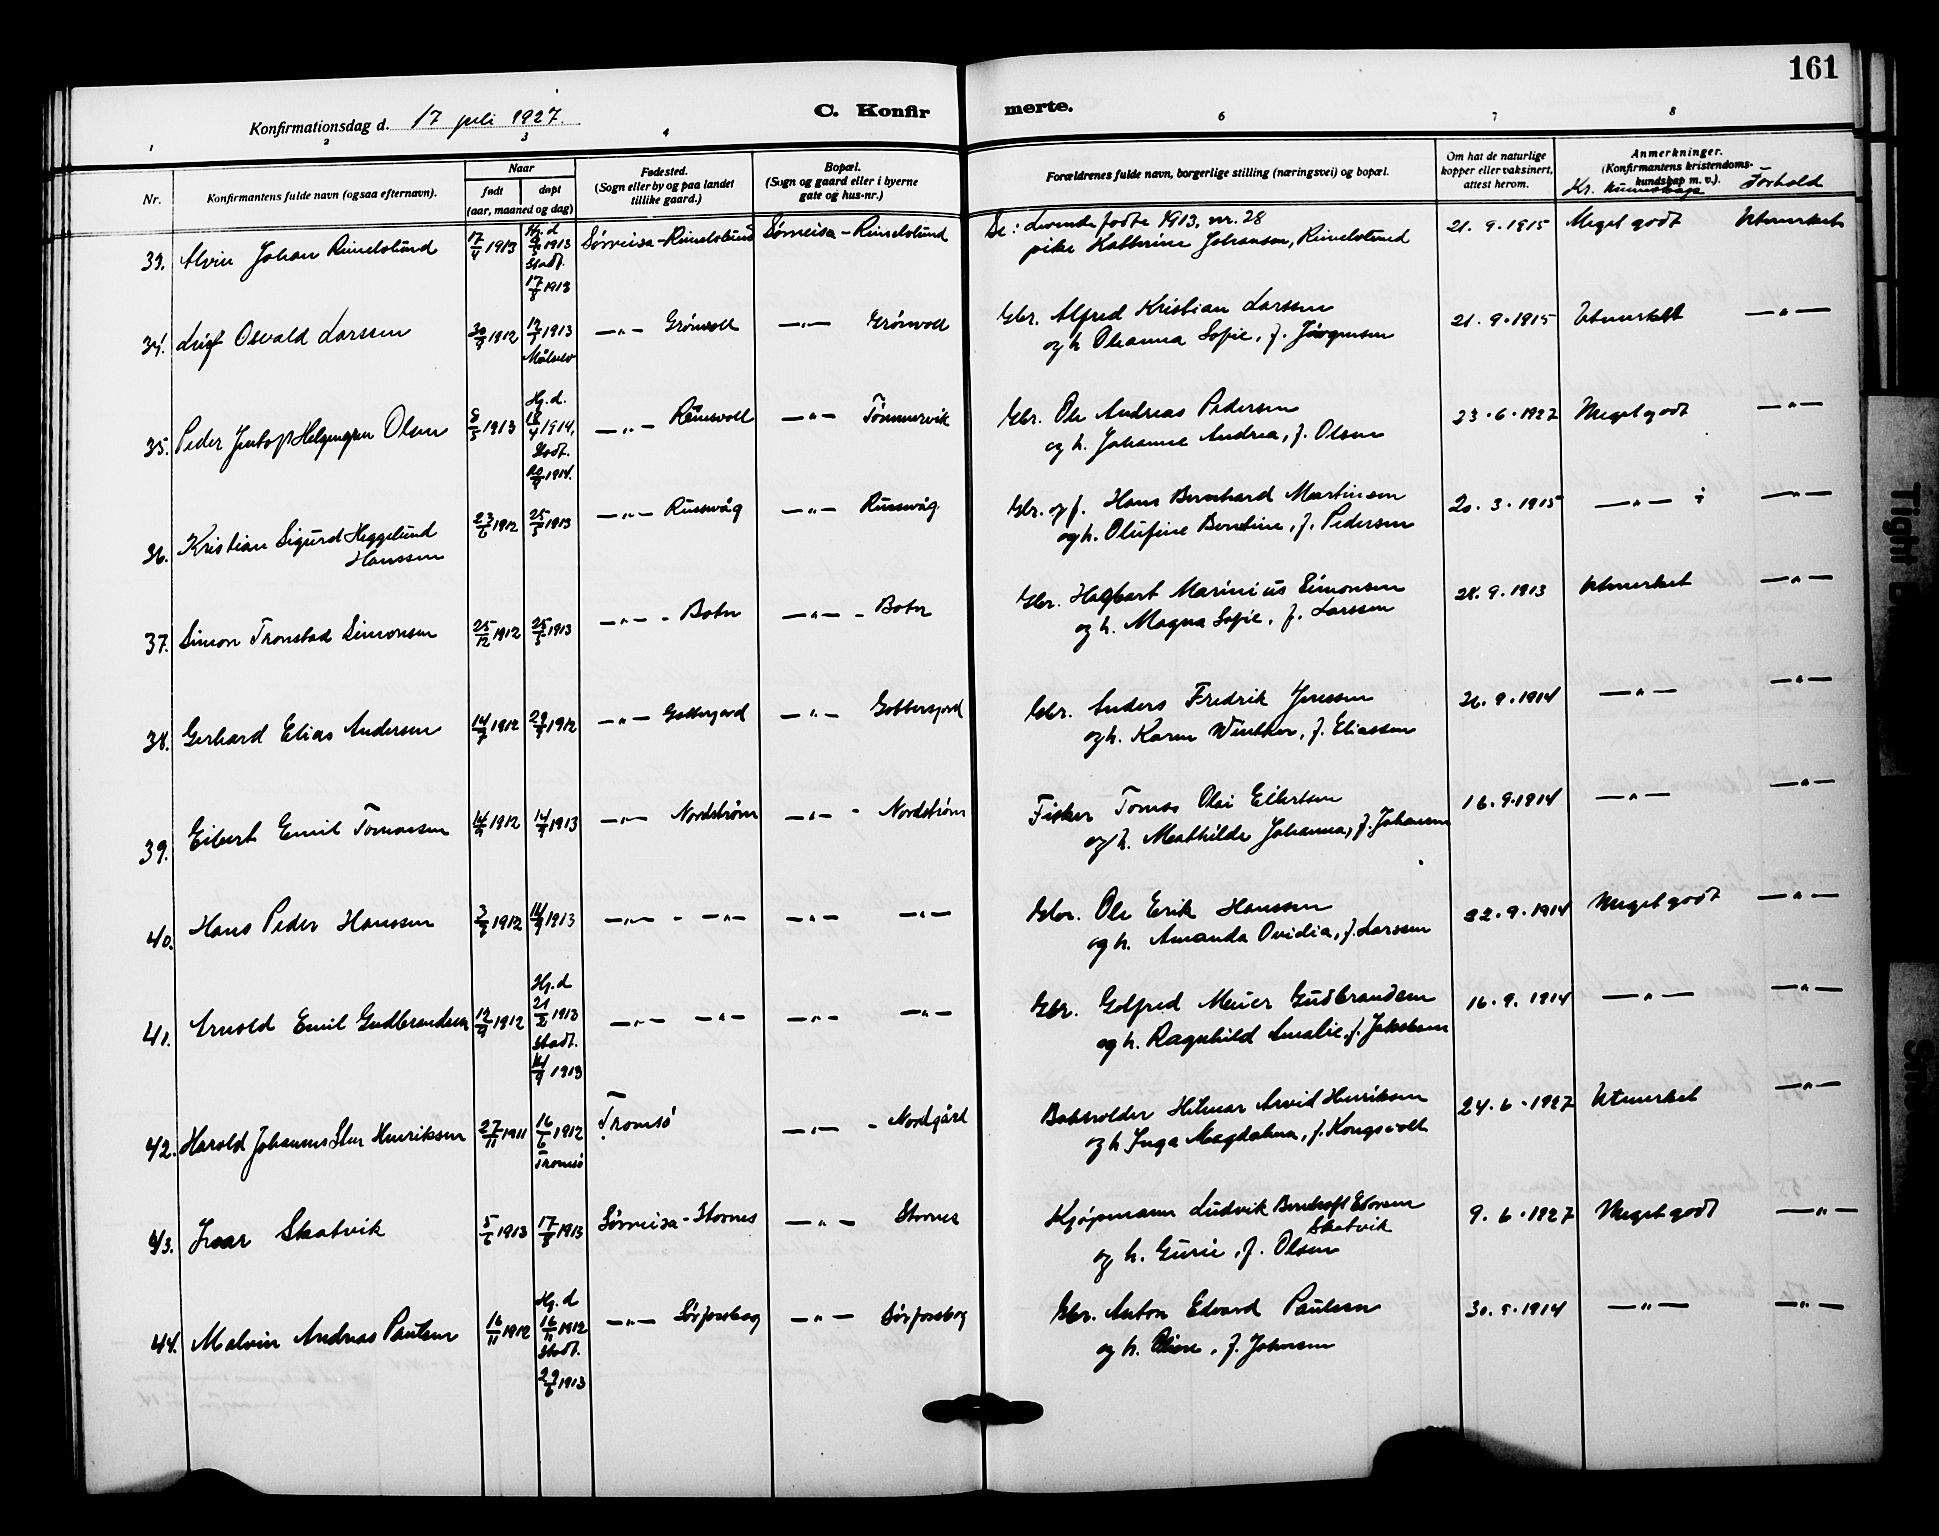 161
Konfirmationsdag d. 17 juli 1927.
C. Konfirmerte.
1 2 3 4 6 7 8
Nr.
Konfirmantens fulde navn (ogsaa efternavn).
Naar
født
døpt
(aar, maaned og dag)
Fødested.
(Sogn eller by og paa landet
tillike gaard.)
Bopæl.
(Sogn og gaard eller i byerne
gate og hus-nr.)
Forældrenes fulde navn, borgerlige stilling (næringsvei) og bopæl.
Om hat de naturlige
kopper eller vaksinert,
attest herom.
Anmerkninger.
(Konfirmantens kristendoms-
kundskap m. v.).
Kr. kunnskap Forhold
33. Alvin Johan Rimelslund 17/4 1913 Hj.d. 1913 Stadf. 17/8 1913 Sørreisa - Rimelslund Sørreisa - Rimelslund
Se: Levende fødte 1913, nr. 28
pike Kathrine Johansen, Rimelslund 21.9.1915 Meget godt Utmerket
34. Osvald Larssen 30/9 1912 1913 Målselv —"— Grönvoll —"— Grönvoll
Gbr. Alfred Kristian Larssen
og h. Oleanna Sofie, f. Jörgensen 21.9.1915 Utmerket —"—
35. Peder Olsen 8/5 1913 Hj.d. 18/4 1914. Stadf. 1914. —"— —"— Tømmervik
Gbr. Ole Andreas Pedersen
og h. Johanne Andrea, f. Olsen 23.6.1927 Meget godt —"—
36. Kristian Sigurd Heggelund
Hanssen 23/6 1912 25/5 1913 —"— Russevåg —"— Russevåg
Gbr. og f. Hans Bernhard Martinsen
og h. Olufine Berntine, f. Pedersen 20.3.1915 —"— —"—
37. Simon Tronstad Simonsen 25/12 1912 25/5 1913 —"— - Botn —"— - Botn
Gbr. Hagbart Marinius Simonsen
og h. Magna Sofie, f. Larssen 28.9.1913 Utmerket —"—
38. Gerhard Elias Andersen 14/7 1912 29/9 1912 —"— Gottesjord —"— Gottesjord
Gbr. Anders Fredrik Jenssen
og h. Karen Winther, f. Eliassen 21.9.1914 —"— —"—
39. Eibert Emil Tomassen 14/9 1912 14/9 1913 —"— Nordstrøm —"— - Nordstrøm
Fisker Tomas Olai Eilertsen
og h. Mathilde Johanna, f. Johansen 16.9.1914 —"— —"—
40. Hans Peder Hanssen 1912 14/9 1913 —"— - —"— —"— —"—
Gbr. Ole Erik Hanssen
og h. Amanda Ovidia, f. Larssen 22.9.1914 Meget godt —"—
41. Arnold Emil Gudbrandsen 12/9 1912 Hj.d 21/2 1913 Stadf. 14/9 1913 —"— —"— —"— —"—
Gbr. Golfred Meier Gudbrandsen
og h. Ragnhild Amalie, f. Jakobsen 16.9.1914 —"— —"—
42. Harald Johannes Henriksen 27/11 1911 16/6 1912 Tromsö Tromsö —"— - Nordgård
Hilmar Arvid Henriksen
og h. Inga Magdalena, f. Kongsvoll 24.6.1927 Utmerket —"—
43. Ivar Skatvik 5/6 1913 17/8 1913 Sørreisa - Stornes —"— Stornes
Kjøpmann Ludvik Bernhoft Edvin
Skatvik
og h. Gurie, f. Olsen 9.6.1927 Meget godt —"—
44. Malvin Andreas Paulsen 16/11 1912 Hj.d 16/11 1912 Stadf. 29/6 1913 —"— Sørforsbog —"— Sørforsbog
Gbr. Anton Edvard Paulsen
og h. Oline, f. Johansen 30.5.1914 —"— —"—
Tight